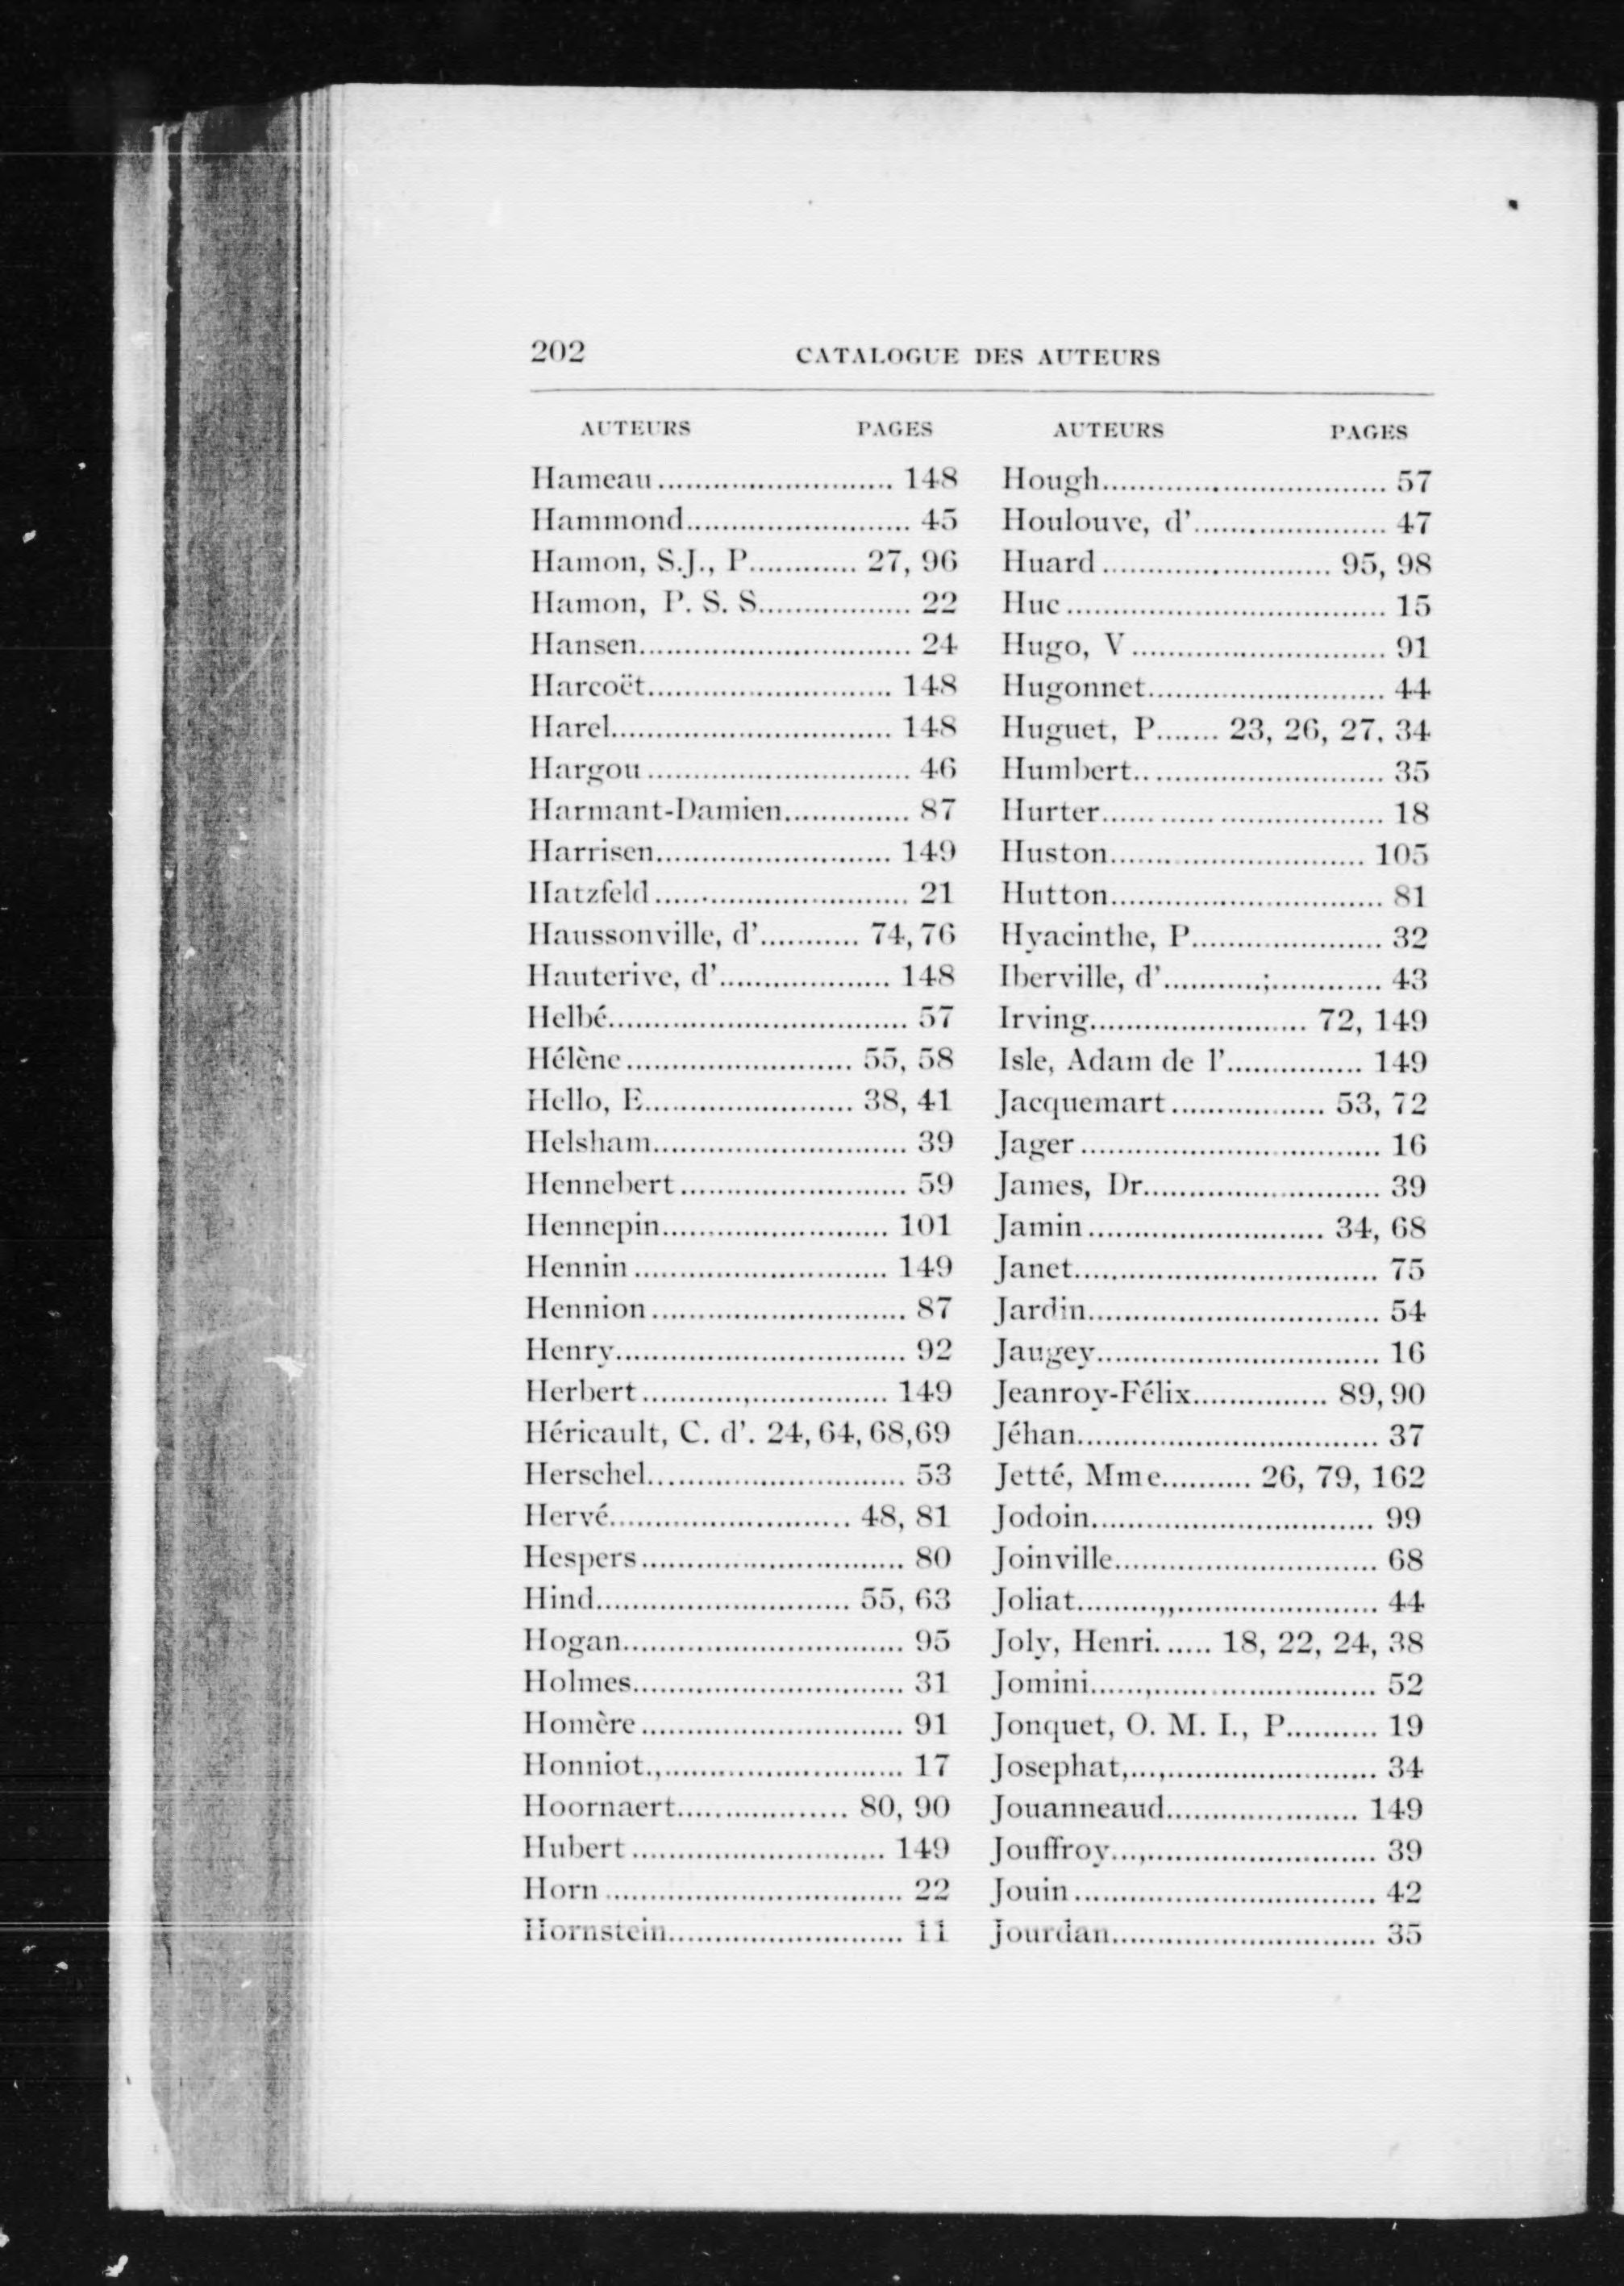 202 CATALOGUE DES AUTEURS
AUTEURS PAGES
Hameau.......................... 148
Hammond......................... 45
Hamon, S.J., P............ 27, 96
Hamon, P. S. S................. 22
Hansen.............................. 24
Harcoët........................... 148
Harel............................... 148
Hargou............................. 46
Harmant-Damien.............. 87
Harrisen.......................... 149
Hatzfeld............................ 21
Haussonville, d'........... 74, 76
Hauterive, d'................... 148
Helbé................................. 57
Hélène......................... 55, 58
Hello, E....................... 38, 41
Helsham............................ 39
Hennebert......................... 59
Hennepin......................... 101
Hennin............................ 149
Hennion............................ 87
Henry................................ 92
Herbert........................... 149
Héricault, C. d'. 24, 64, 68,69
Herschel............................ 53
Hervé.......................... 48, 81
Hespers............................. 80
Hind............................ 55, 63
Hogan............................... 95
Holmes.............................. 31
Homère............................. 91
Honniot.,.......................... 17
Hoornaert................... 80, 90
Hubert............................ 149
Horn................................. 22
Hornstein.......................... 11
AUTEURS PAGES
Hough............................... 57
Houlouve, d'..................... 47
Huard......................... 95, 98
Huc................................... 15
Hugo, V............................ 91
Hugonnet.......................... 44
Huguet, P....... 23, 26, 27, 34
Humbert............................ 35
Hurter............................... 18
Huston............................ 105
Hutton.............................. 81
Hyacinthe, P..................... 32
Iberville, d'...........;............ 43
Irving........................ 72, 149
Isle, Adam de l'............... 149
Jacquemart................. 53, 72
Jager................................. 16
James, Dr.......................... 39
Jamin.......................... 34, 68
Janet................................. 75
Jardin................................ 54
Jaugey............................... 16
Jeanroy-Félix............... 89, 90
Jéhan................................. 37
Jetté, Mme.......... 26, 79, 162
Jodoin............................... 99
Joinville............................. 68
Joliat.........,,...................... 44
Joly, Henri...... 18, 22, 24, 38
Jomini......,......................... 52
Jonquet, O. M. I., P.......... 19
Josephat,...,....................... 34
Jouanneaud..................... 149
Jouffroy...,......................... 39
Jouin................................. 42
Jourdan............................. 35